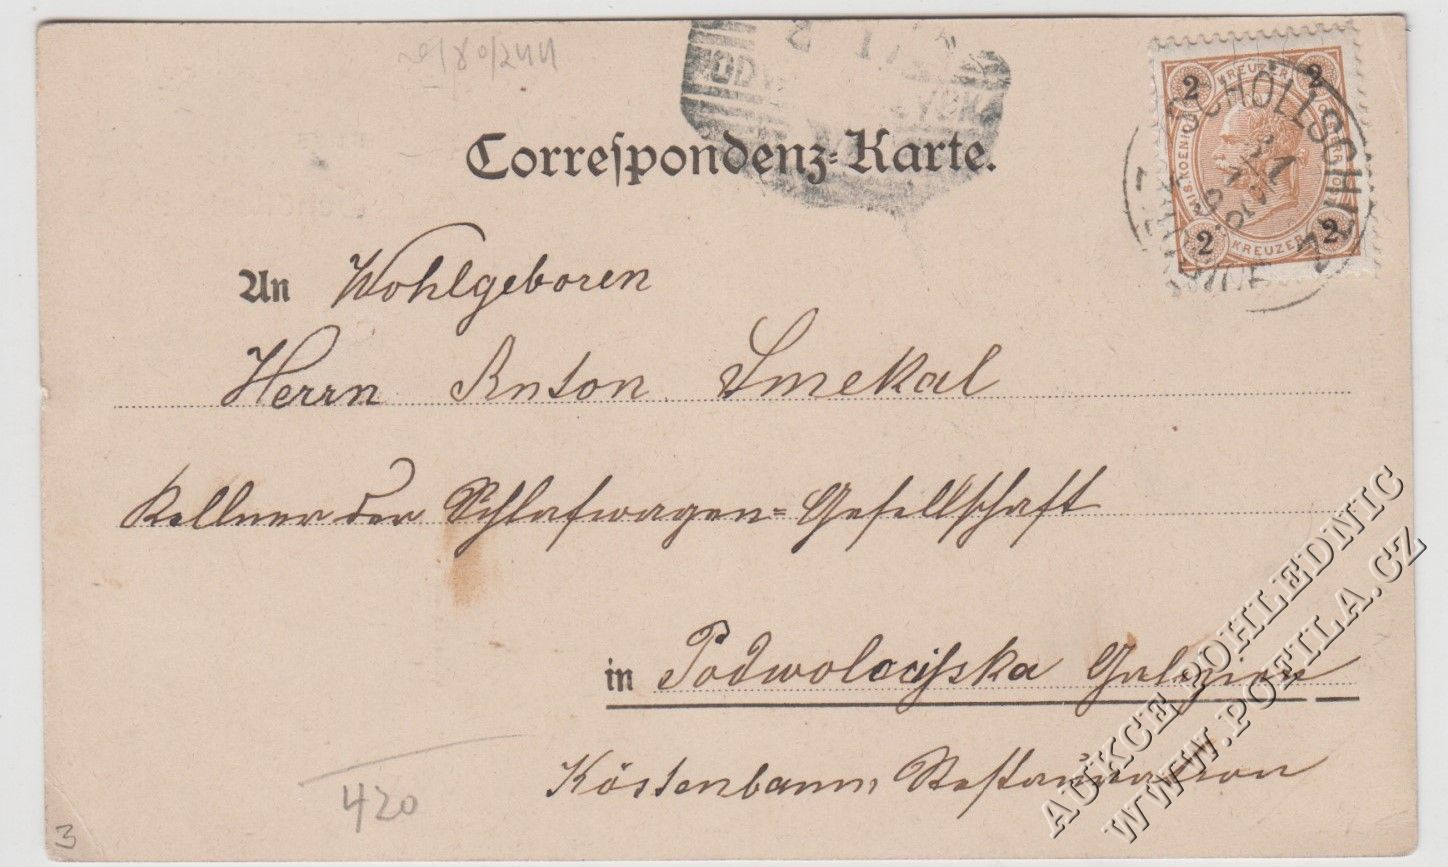 2 17
Correspondenz-Karte.
2 KREUZER 2
SCHÖLLSCHITZ
2 KREUZER 2
An Wohlgeboren
Herrn Anton Smekal
Kellner der Schlafwagen-Gesellschaft
in Podwolocisska Galizien
Restauration
420
3
AUKCE POHLEDNIC
WWW.POFILA.CZ